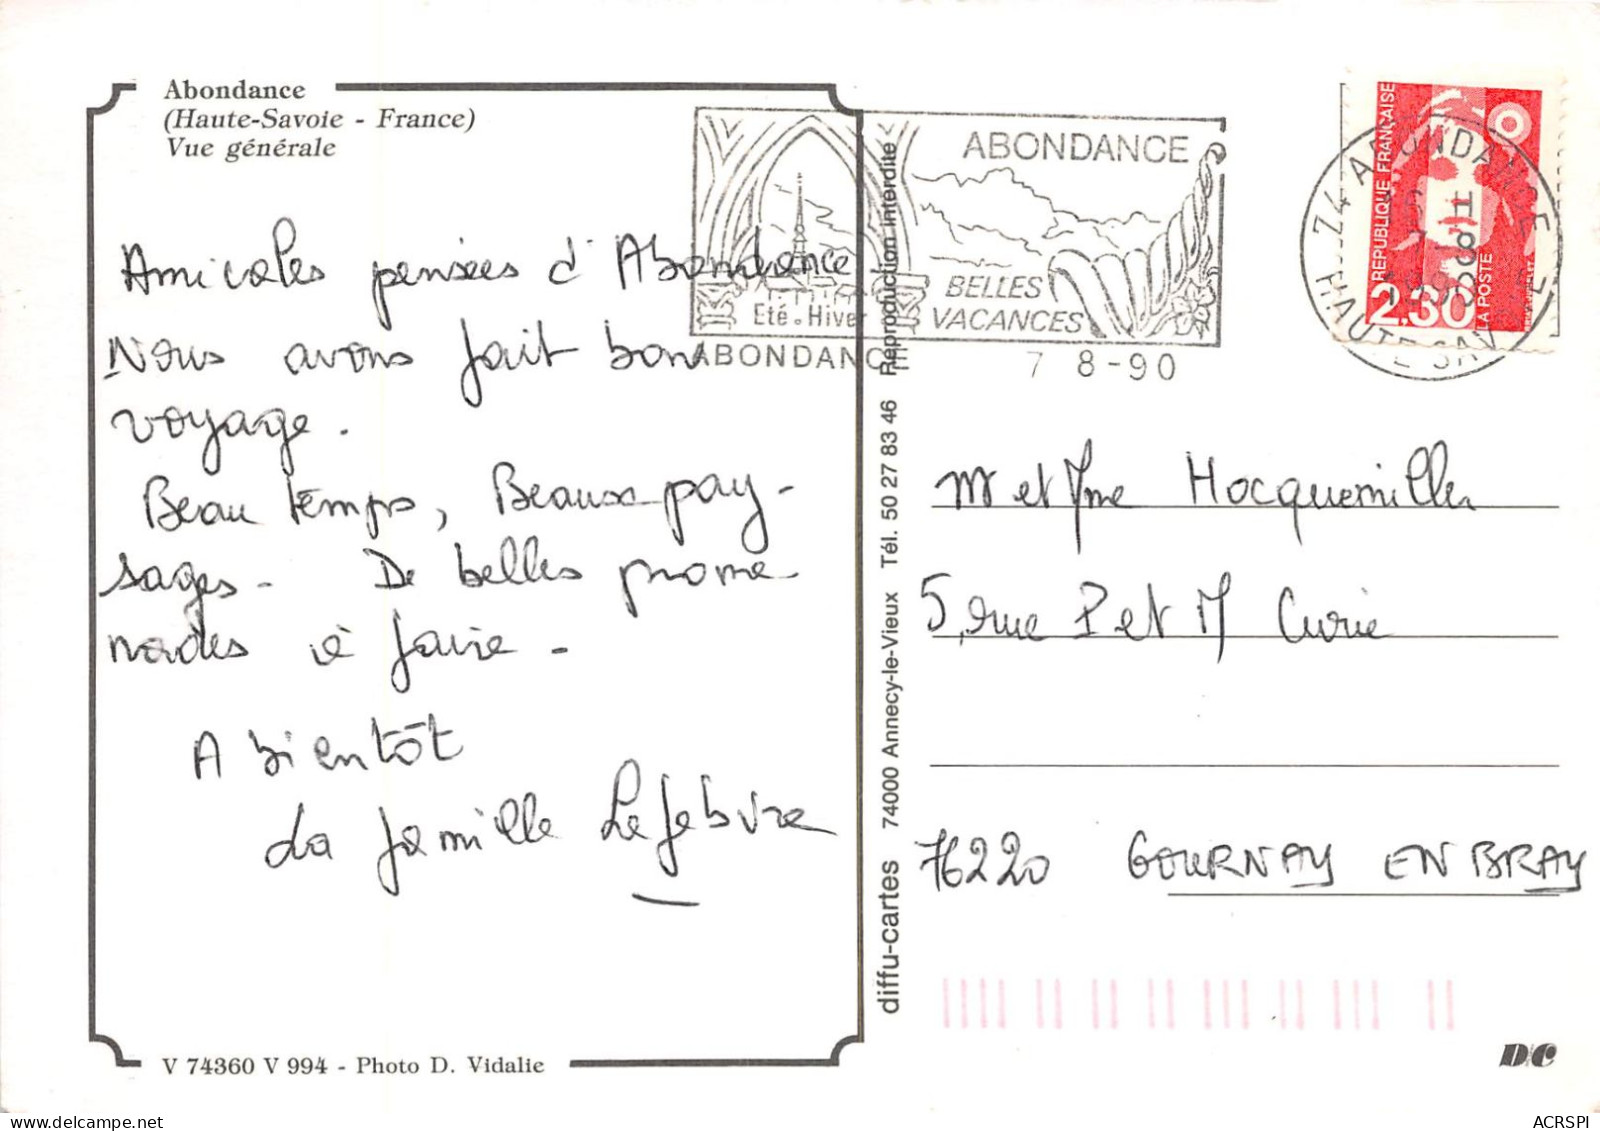 Abondance
(Haute-Savoie - France)
Vue générale
Amicales pensées d'Abondance
Nous avons fait bon
voyage.
Beau temps, Beaux pay-
sages - De belles prome
nades à faire -
A bientôt
La famille Lefebvre
V 74360 V 994 - Photo D. Vidalie
diffu-cartes 74000 Annecy-le-Vieux Tél. 50 27 83 46 Reproduction interdite
ABONDANCE
BELLES
VACANCES
Eté - Hiver
ABONDANCE
7 8 -90
RÉPUBLIQUE FRANÇAISE
2,30
LA POSTE
74 ABONDANCE
HAUTE SAVOIE
Mr et Mme Hocquemiller
5, rue P et M Curie
76220 GOURNAY EN BRAY
D/C
ACRSPI